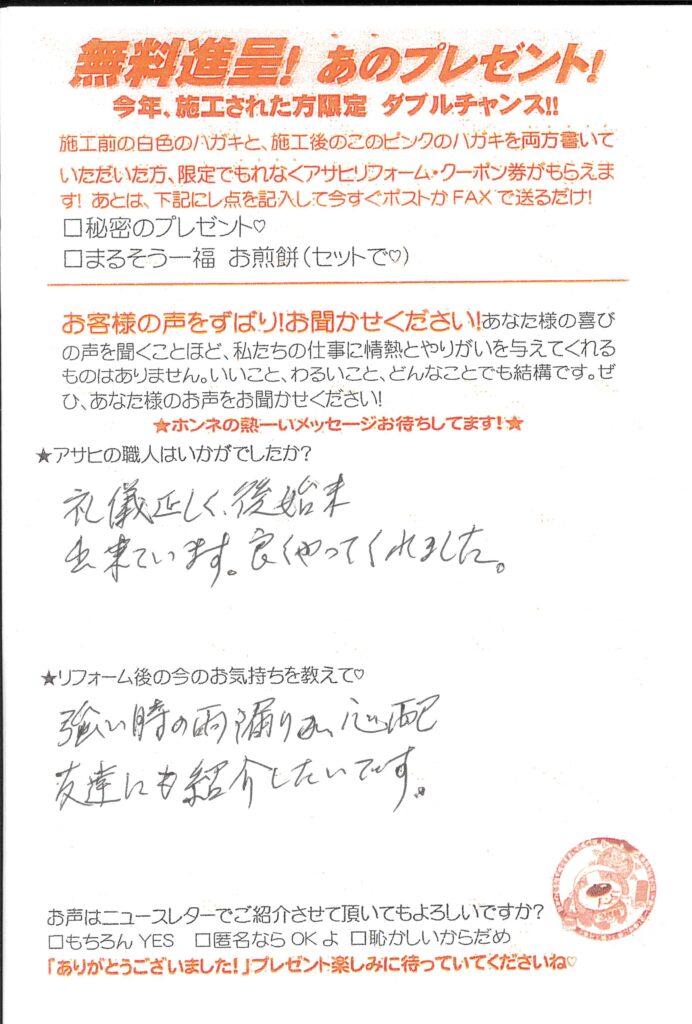 無料進呈! あのプレゼント!
今年、施工された方限定 ダブルチャンス!!
施工前の白色のハガキと、施工後のこのピンクのハガキを両方書いて
いただいた方、限定でもれなくアサヒリフォーム・クーポン券がもらえま
す! あとは、下記にレ点を記入して今すぐポストかFAXで送るだけ!
□秘密のプレゼント♡
□まるそう一福 お煎餅(セットで♡)
お客様の声をずばり!お聞かせください!あなた様の喜び
の声を聞くことほど、私たちの仕事に情熱とやりがいを与えてくれる
ものはありません。いいこと、わるいこと、どんなことでも結構です。ぜ
ひ、あなた様のお声をお聞かせください!
★ホンネの熱ーいメッセージお待ちしてます!★
★アサヒの職人はいかがでしたか?
礼儀正しく、後始末
出来ています。良くやってくれました。
★リフォーム後の今のお気持ちを教えて♡
強い時の雨漏り 心配
友達にも紹介したいです。
お声はニュースレターでご紹介させて頂いてもよろしいですか?
□もちろんYES □匿名ならOKよ □恥かしいからだめ
「ありがとうございました!」プレゼント楽しみに待っていてくださいね♡